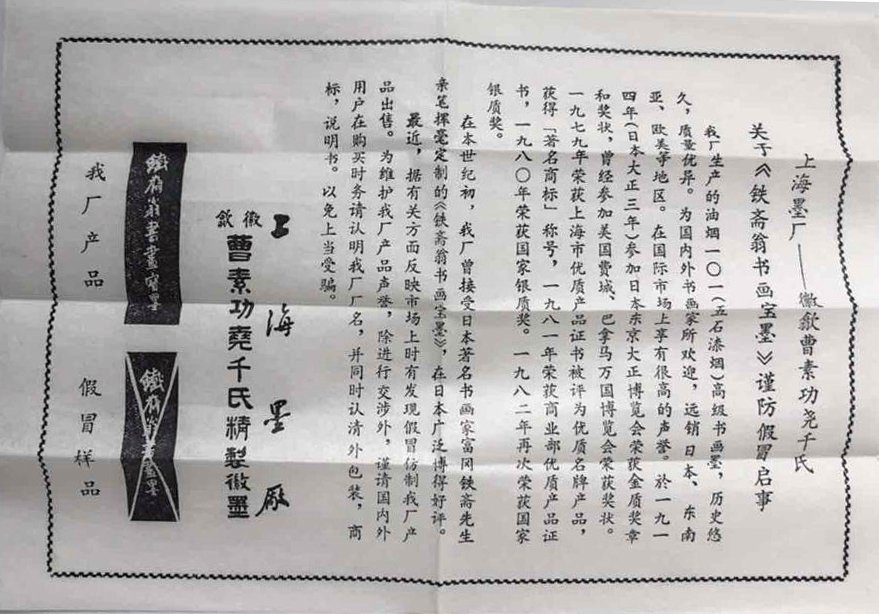 上海墨厂——徽歙曹素功尧千氏
关于《铁斋翁书画宝墨》谨防假冒启事
我厂生产的油烟一〇一(五石漆烟)高级书画墨,历史悠
久,质量优异。为国内外书画家所欢迎,远销日本、东南
亚、欧美等地区。在国际市场上享有很高的声誉。於一九一
四年(日本大正三年)参加日本东京大正博览会荣获金质奖章
和奖状,曾经参加美国费城、巴拿马万国博览会荣获奖状。
一九七九年荣获上海市优质产品证书被评为优质名牌产品,
获得「著名商标」称号,一九八一年荣获商业部优质产品证
书,一九八〇年荣获国家银质奖。一九八二年再次荣获国家
银质奖。
在本世纪初,我厂曾接受日本著名书画家富冈铁斋先生
亲笔挥毫定制的《铁斋翁书画宝墨》,在日本广泛博得好评。
最近,据有关方面反映市场上时有发现假冒仿制我厂产
品出售。为维护我厂产品声誉,除进行交涉外,谨请国内外
用户在购买时务请认明我厂厂名,并同时认清外包装,商
标,说明书。以免上当受骗。
上海墨厰
徽歙
曹素功堯千氏精製徽墨
鐵齋翁書畫寶墨
我厂产品
鐵齋翁書畫寶墨
假冒样品